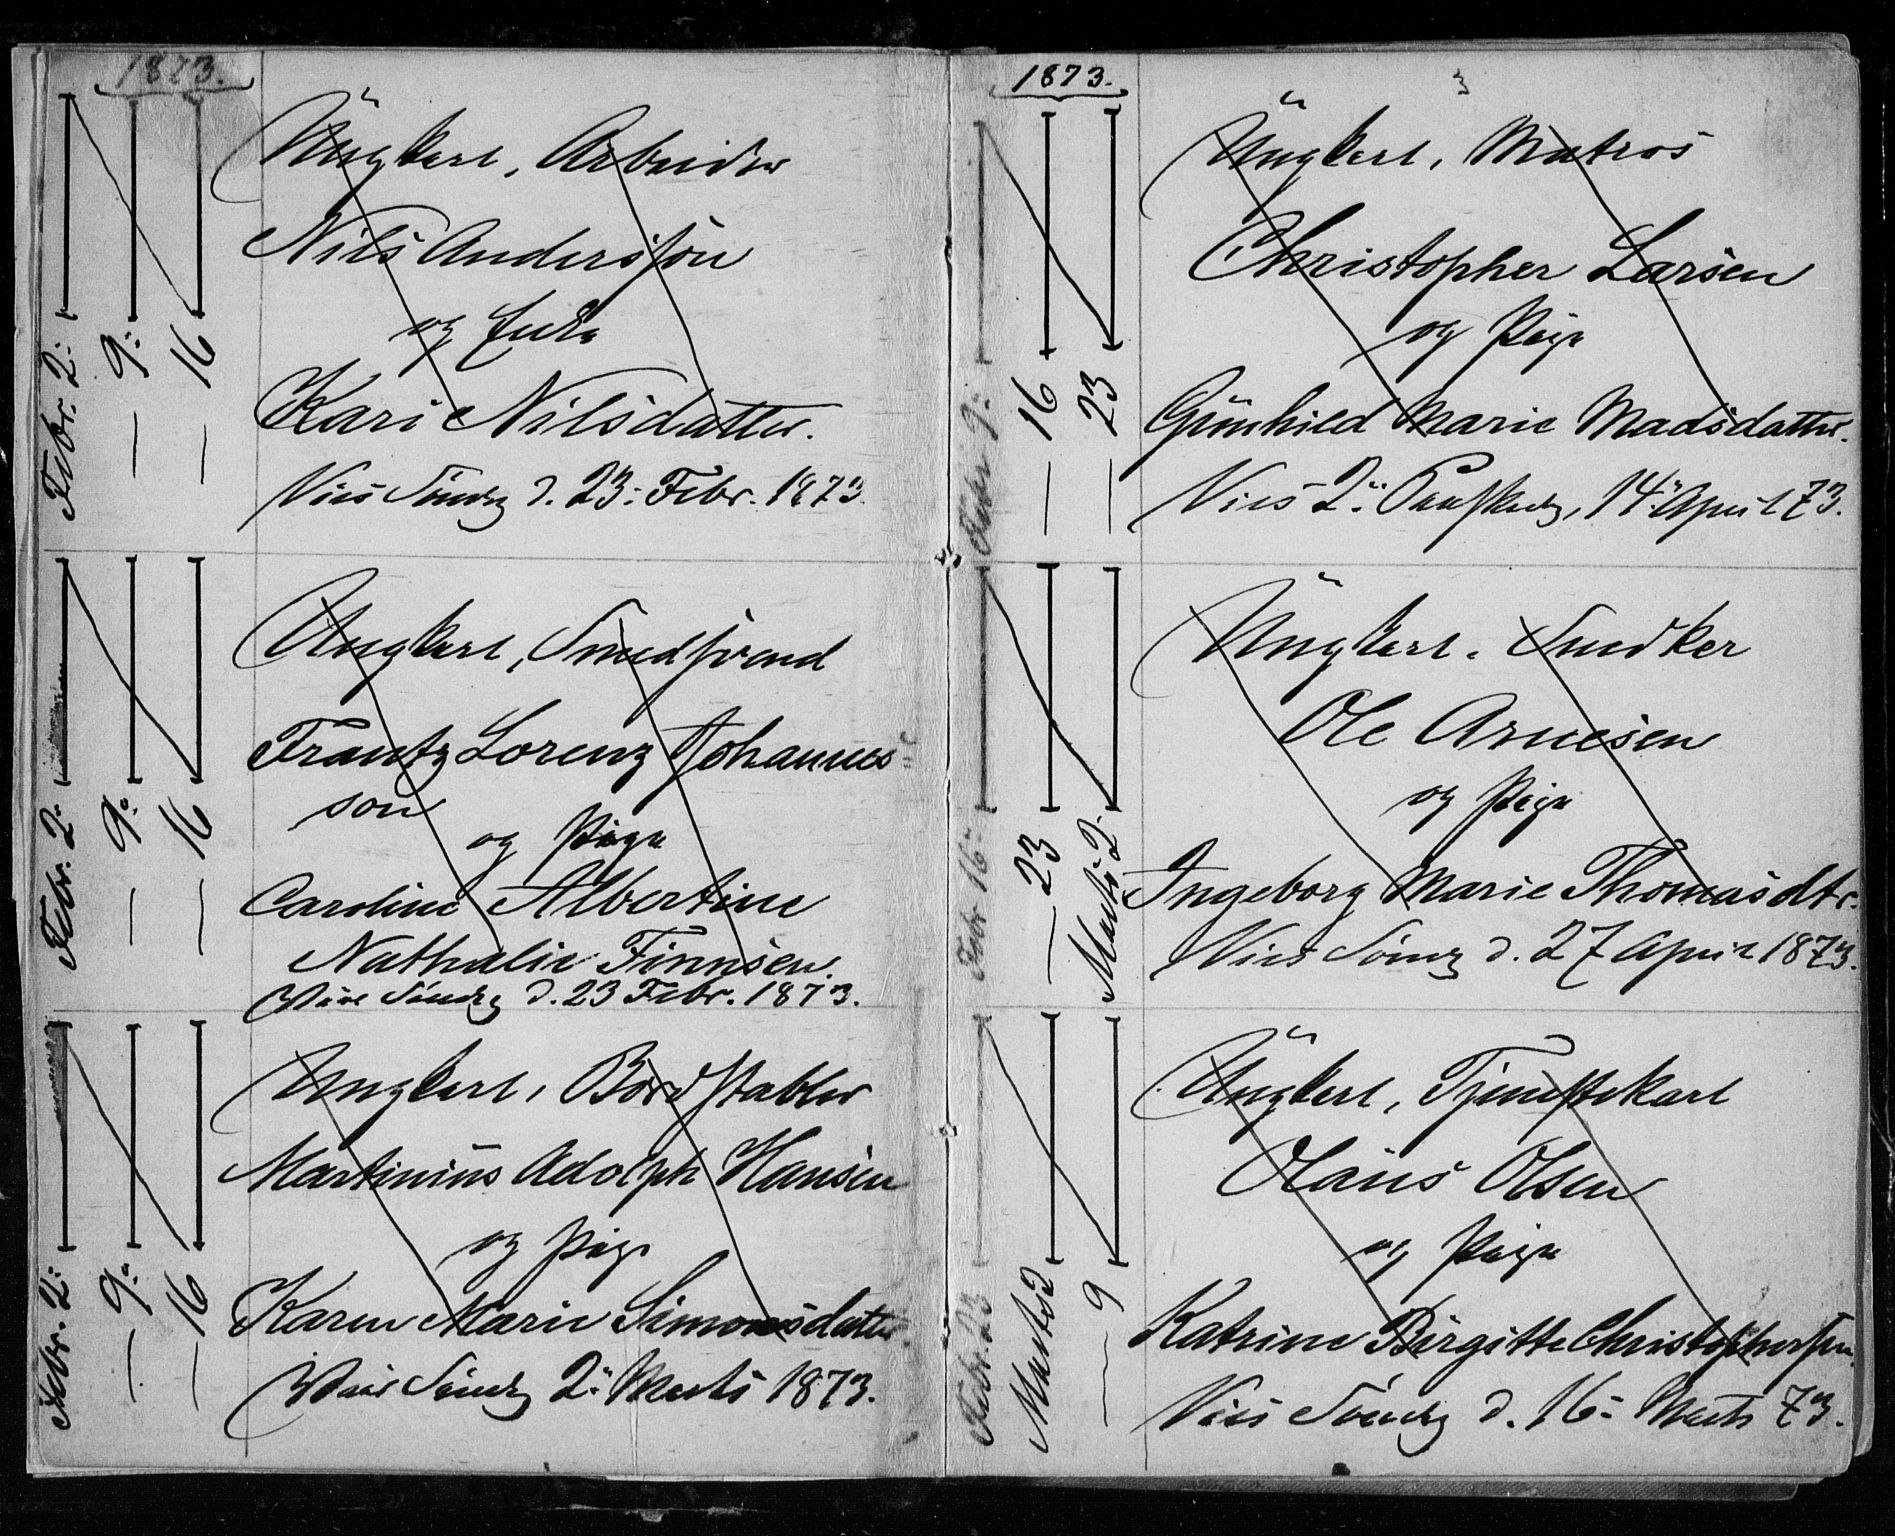 1873.
Febr. 2:
— 9:
— 16
Ungkarl, Arbeider
Nils Anderssøn
og Enke
Kari Nilsdatter.
Vies Søndg d. 23: Febr. 1873.
Febr. 2:
— 9:
— 16
Ungkarl, Smedsvend
Frantz Lorenz Johannes=
son
og Pige
Caroline Albertine
Nathalie Finnsen.
Viæ Søndg d. 23 Febr. 1873.
Febr. 2:
— 9:
— 16
Ungkarl, Bordstabler
Martinius Adolph Hansen
og Pige
Karen Marie Simonsdatter
Viæ Søndg 2: Marts 1873.
1873.
3
Febr 9:
— 16
— 23
Ungkarl, Matros
Christopher Larsen
og Pige
Gunhild Marie Madsdatter.
Vies 2: Paaskedg, 14: April 73.
Febr 16:
— 23
Marts 2:
Ungkarl. Snedker
Ole Arnesen
og Pige
Ingeborg Marie Thomasdtr.
Vies Søndg d. 27 April 1873.
Febr. 23
Marts 2
— 9
Ungkarl, Tjenestekarl
Olaus Olsen
og Pige
Katrine Birgitte Christophersen.
Vies Søndg d. 16: Marts 73.